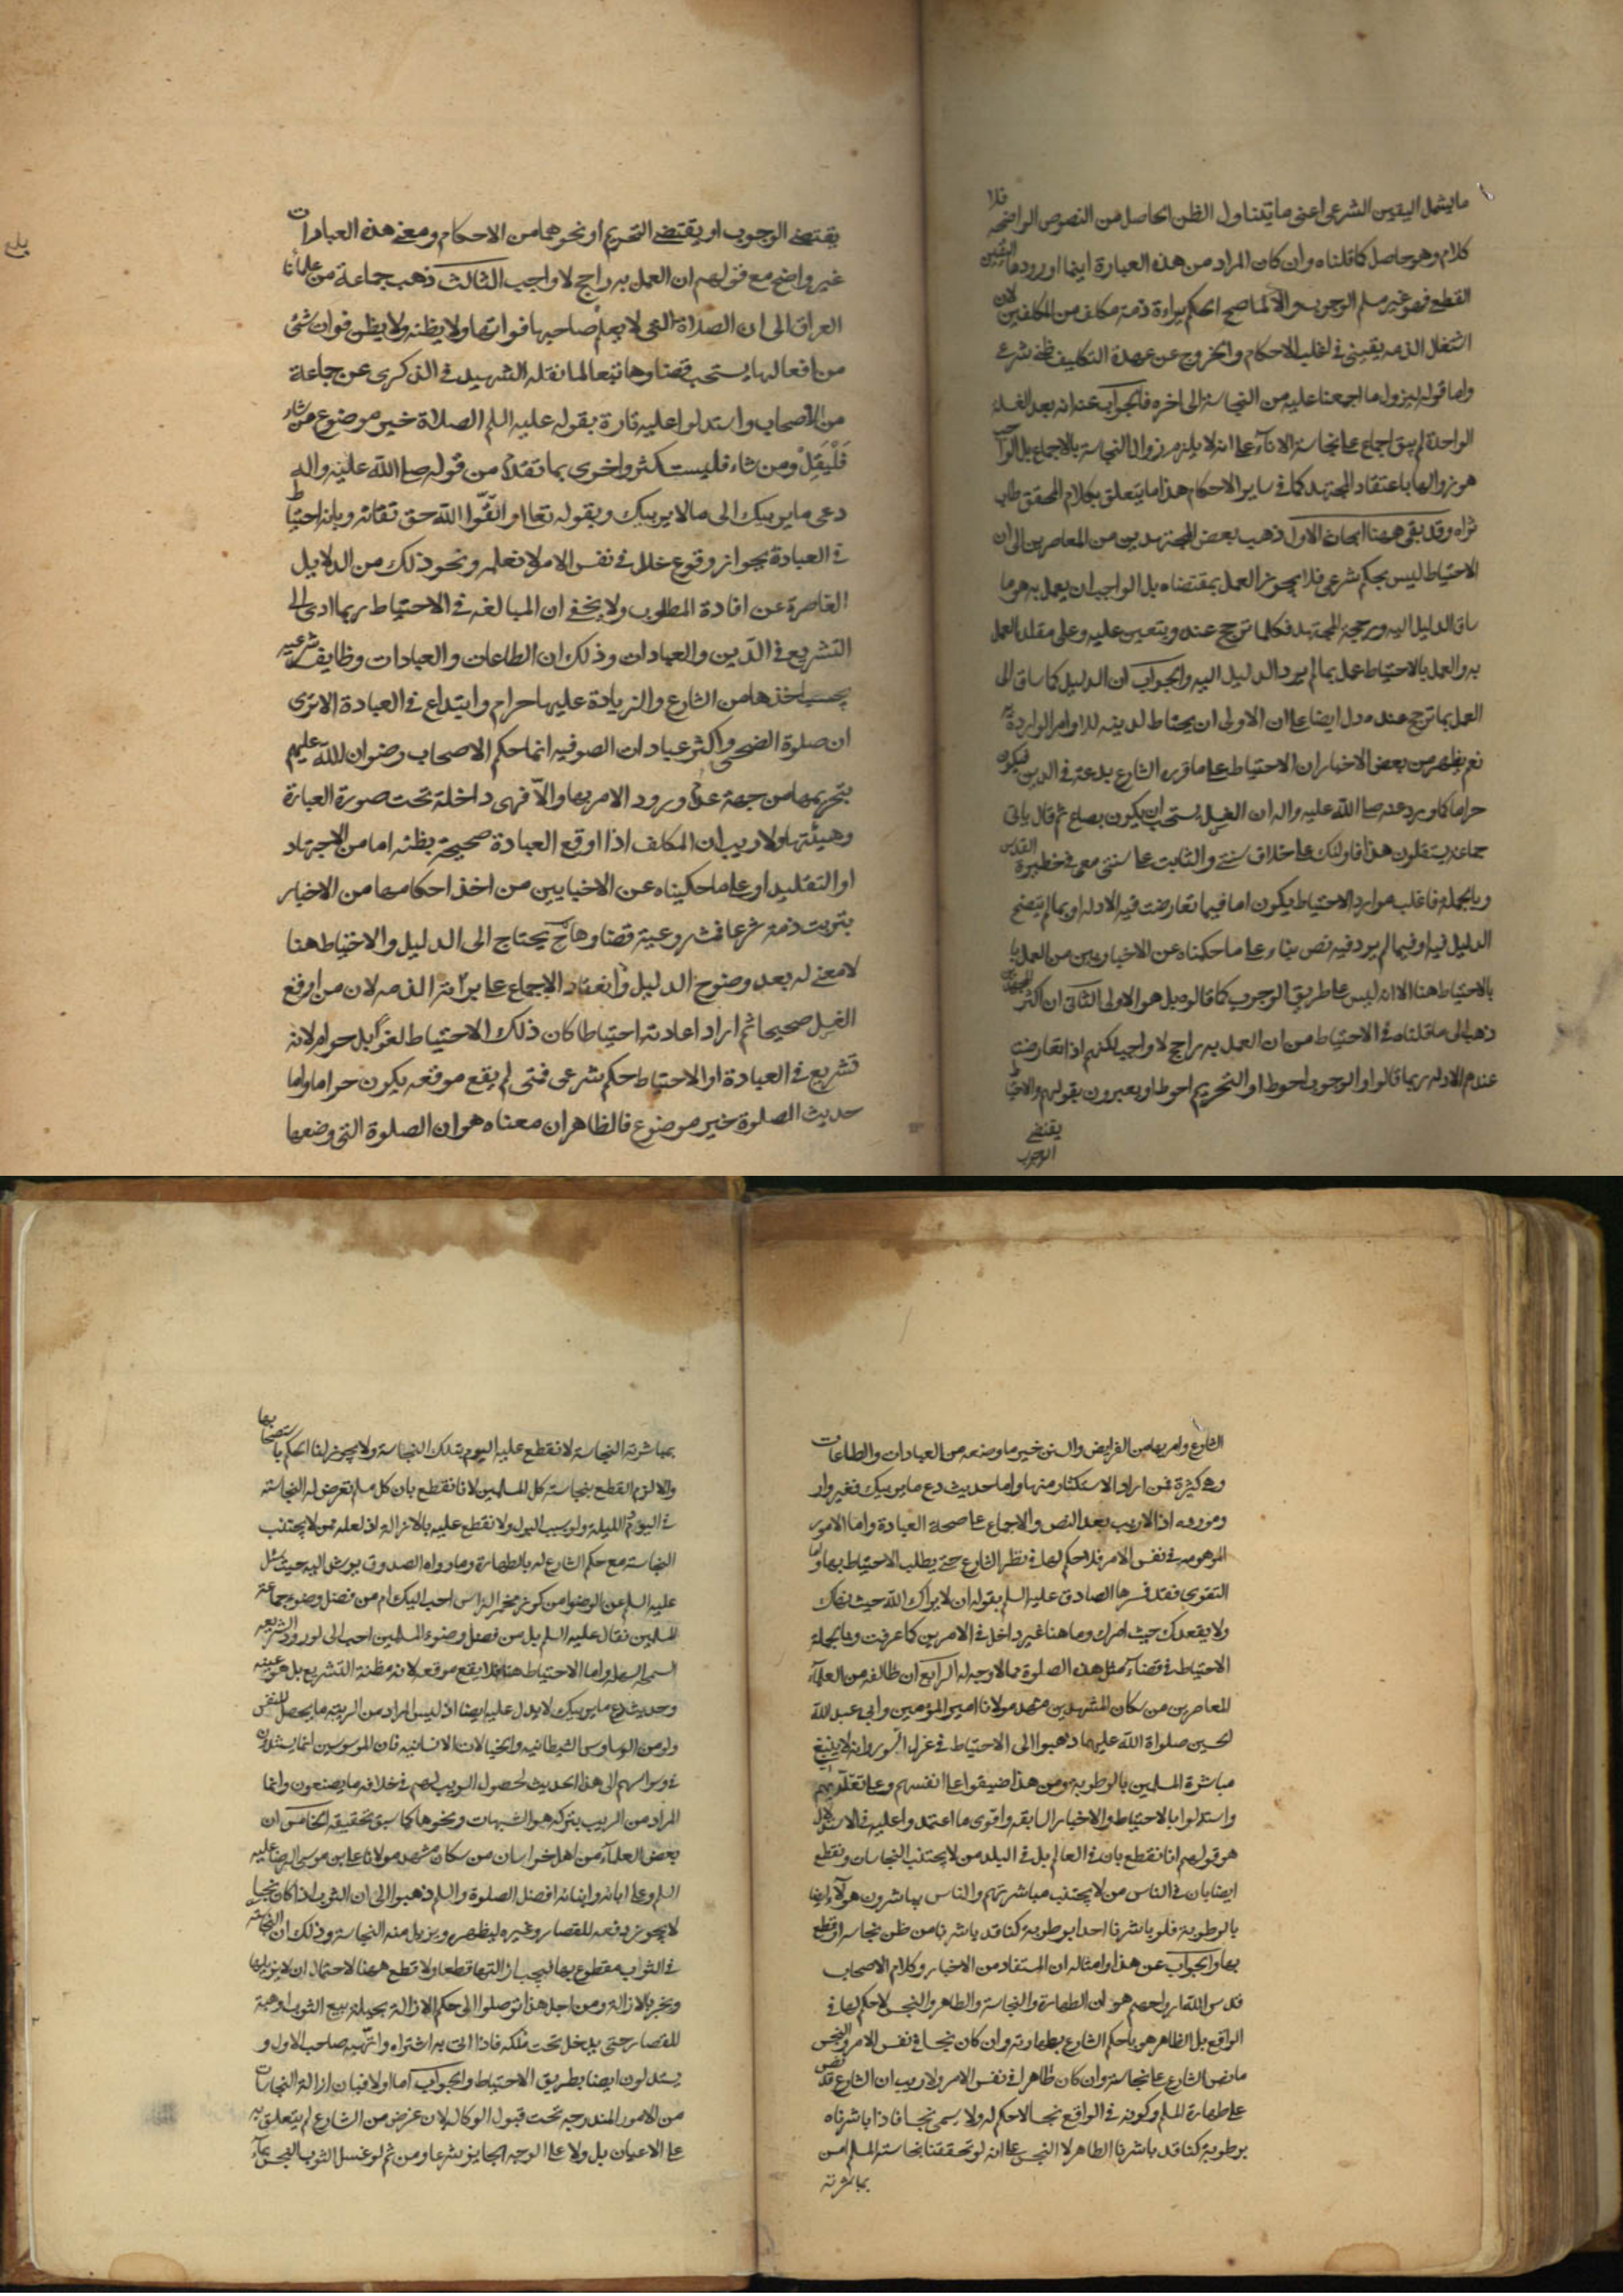 ما يشمل اليقين الشرعي اعني ما يتناول الظن الحاصل من النصوص الواضحة فلا
كلام وهو حاصل كما قلناه وان كان المراد من هذه العبارة اينما اوردها اليقين
القطع فهو غير مسلم الوجوب والا لما صح الحكم ببراءة ذمة مكلف من المكلفين لان
اشتغال الذمه يقيني في اغلب الاحكام والخروج عن عهدة التكليف ظني شرعي
واما قوله ليزول ما اجمعنا عليه من النجاسة الى اخره فالجواب عنه انه بعد الغسلة
الواحدة لم يبق اجماع على نجاسة الاناء على انه لا يلزم زوال النجاسة بالاجماع بل الواجب
هو زوالها باعتقاد المجتهد كما في ساير الاحكام هذا ما يتعلق بكلام المحقق طاب
ثراه وقد بقي ههنا ابحاث الاول ذهب بعض المجتهدين من المعاصرين الى ان
الاحتياط ليس بحكم شرعي فلا يجوز العمل بمقتضاه بل الواجب ان يعمل به هو ما
ساق الدليل اليه ورجحه المجتهد فكلما ترجح عنده ويتعين عليه وعلى مقلده العمل
به والعمل بالاحتياط عمل بما لم يرد الدليل اليه والجواب ان الدليل كما ساق الى
العمل بما ترجح عنده دل ايضا على ان الاولى ان يحتاط لدينه للاوامر الواردة به
نعم يظهر من بعض الاخبار ان الاحتياط على ما قرره الشارع بدعة في الدين فيكون
حراما كما ورد عنه صلى الله عليه واله ان الغسل يستحب ان يكون بصاع ثم قال ياتي
جماعة يستقلون هذا فاولئك على خلاف سنتي والثابت على سنتي معي في حظيرة القدس
وبالجملة فاغلب موارد الاحتياط يكون اما فيما تعارضت فيه الادلة او بما لم يتضح
الدليل فيه او فيما لم يرد فيه نص بناء على ما حكيناه عن الاخباريين من العمل
بالاحتياط هنا الا انه ليس على طريق الوجوب كما قالوه بل هو الاولى الثاني ان اكثر المجتهدين
ذهب الى ما قلناه في الاحتياط من ان العمل به راجح لا واجب لكنهم اذا تعارضت
عندهم الادلة ربما قالوا والوجوب احوط او التحريم احوط او يعبرون بقولهم والاحتياط
يقتضي
الوجوب
يقتضي الوجوب او يقتضي التحريم او نحوهما من الاحكام ومعنى هذه العبارات
غير واضح مع قولهم ان العمل به راجح لا واجب الثالث ذهب جماعة من علمائنا
العراق الى ان الصلاة التي لا يعلم صاحبها فواتها ولا يظنه ولا يظن فوات شئ
من افعالها يستحب قضاوها تبعا لما نقله الشهيد في الذكرى عن جماعة
من الاصحاب واستدلوا عليه تارة بقوله عليه السلم الصلاة خير موضوع فمن شاء
فليقل ومن شاء فليستكثر واخرى بما تقدم من قوله صلى الله عليه واله
دع ما يريبك الى ما لا يريبك وبقوله تعالى اتقوا الله حق تقاته وبانه احتياط
في العبادة بجواز وقوع خلل في نفس الامر لا نعلمه ونحو ذلك من الدلايل
القاصرة عن افادة المطلوب ولا يخفى ان المبالغة في الاحتياط ربما ادى الى
التشريع في الدين والعبادات وذلك ان الطاعات والعبادات وظايف شرعيه
يجب اخذها من الشارع والزيادة عليها حرام وابتداع في العبادة الا ترى
ان صلوة الضحى واكثر عبادات الصوفيه انما حكم الاصحاب رضوان الله عليهم
بتحريمها من جهة عدم ورود الامر بها والا فهي داخلة تحت صورة العبادة
وهيئتها ولا ريب ان المكلف اذا اوقع العبادة صحيحة بظنه اما من الاجتهاد
او التقليد او على ما حكيناه عن الاخباريين من اخذ احكامها من الاخبار
بتربت ذمته شرعا فمشروعية قضاوها ح يحتاج الى الدليل والاحتياط هنا
لا معنى له بعد وضوح الدليل وانعقاد الاجماع على براءة الذمه لان من اوقع
الغسل صحيحا ثم اراد اعادته احتياطا كان ذلك الاحتياط لغوا بل حرام لانه
تشريع في العبادة او الاحتياط حكم شرعي فمتى لم يقع موقعه يكون حراما واما
حديث الصلوة خير موضوع فالظاهر ان معناه هو ان الصلوة التي وضعها
الشارع وامر بها من الفرايض والسنن خير ما وضعه من العبادات والطاعات
وهي كثيرة فمن اراد الاستكثار منها واما حديث دع ما يريبك فغير وارد
ومورده اذ لا ريب بعد النص والاجماع على صحة العبادة واما الامور
الموهومه في نفس الامر فلا حكم لها في نظر الشارع حتى يطلب الاحتياط بها واما
التقوى فقد فسرها الصادق عليه السلم بقوله ان لا يراك الله حيث نهاك
ولا يفقدك حيث امرك وما هنا غير داخل في الامرين كما عرفت وبالجملة
الاحتياط في قضاء مثل هذه الصلوة مما لا وجه له الرابع ان طائفه من العلماء
المعاصرين من سكان المشهدين مشهد مولانا امير المؤمنين وابي عبد الله
الحسين صلواة الله عليهما ذهبوا الى الاحتياط في غزل السور وانه لا ينبغي
مباشرة المسلمين بالرطوبة ومن هذا ضيقوا على انفسهم وعلى مقلديهم
واستدلوا بالاحتياط والاخبار السابقه واقوى ما اعتمدوا عليه في الاستدلال
هو قولهم انا نقطع بان في العالم بل في البلد من لا يجتنب النجاسات ونقطع
ايضا بان في الناس من لا يجتنب مباشرتهم والناس يباشرون هؤلاء ايضا
بالرطوبة فلو باشرنا احدا برطوبة كنا قد باشرنا من ظن نجاسته او قطع
بها والجواب عن هذا وامثاله ان المستفاد من الاخبار وكلام الاصحاب
قدس الله ارواحهم هو ان الطهارة والنجاسة والطاهر والنجس لا حكم لها في
الواقع بل الطاهر هو ما حكم الشارع بطهارته وان كان نجسا في نفس الامر والنجس
ما نص الشارع على نجاسته وان كان طاهرا في نفس الامر ولا ريب ان الشارع قد نص
على طهارة المسلم وكونه في الواقع نجسا لا حكم له ولا يسمى نجسا فاذا باشرناه
برطوبة كنا قد باشرنا الطاهر لا النجس على انه لو تحققنا نجاسة المسلم من
بمباشرته
بمباشرته النجاسة لا نقطع عليه اليوم بتلك النجاسة ولا يجوز لنا الحكم باستصحابها
والا لزم القطع بنجاسة كل المسلمين لانا نقطع بان كل مسلم تعرض له النجاسة
في اليوم والليلة ولو بسبب البول ولا نقطع عليه بالازالة اذ لعله ممن لا يجتنب
النجاسة مع حكم الشارع له بالطهارة وما رواه الصدوق يرشد اليه حيث سئل
عليه السلم عن الوضوء من كوز مخمر الراس احب اليك ام من فضل وضوء جماعة
المسلمين فقال عليه السلم بل من فضل وضوء المسلمين احب الى لورود الشريعه
السمحة السهلة واما الاحتياط هنا فلا يقع موقعه لانه مظنة التشريع بل هو عينه
وحديث دع ما يريبك لا يدل عليه ايضا اذ ليس المراد من الريبه ما يحصل للنفس
ولو من الوساوس الشيطانيه والخيالات الانسانيه فان الموسوسين انما يستندون
في وسواسهم الى هذا الحديث لحصول الريب لهم في خلاف ما يصنعون وانما
المراد من الريب بتركه هو الشبهات ونحوها كما سبق تحقيقه الخامس ان
بعض العلماء من اهل خراسان من سكان مشهد مولانا علي بن موسى الرضا عليه
السلم وعلى ابائه وابنائه افضل الصلوة والسلم ذهبوا الى ان الثوب اذا كان نجسا
لا يجوز دفعه للقصار وغيره ليطهره ويزيل منه النجاسة وذلك ان النجاسة
في الثوب مقطوع بها فيجب ازالتها قطعا ولا قطع ههنا لاحتمال ان لا يزيلها
ويخبر بالازالة ومن اجل هذا توصلوا الى حكم الازالة بحيلة بيع الثوب او هبته
للقصار حتى يدخل تحت ملكه فاذا اتى به اشتراه واتهبه صاحب الاول و
يستدلون ايضا بطريق الاحتياط والجواب اما اولا فبان ازالة النجاسات
من الامور المندرجة تحت قبول الوكالة لان غرض من الشارع لم يتعلق به
على الاعيان بل ولا على الوجه الجايز شرعا ومن ثم لو غسل الثوب النجس بماء